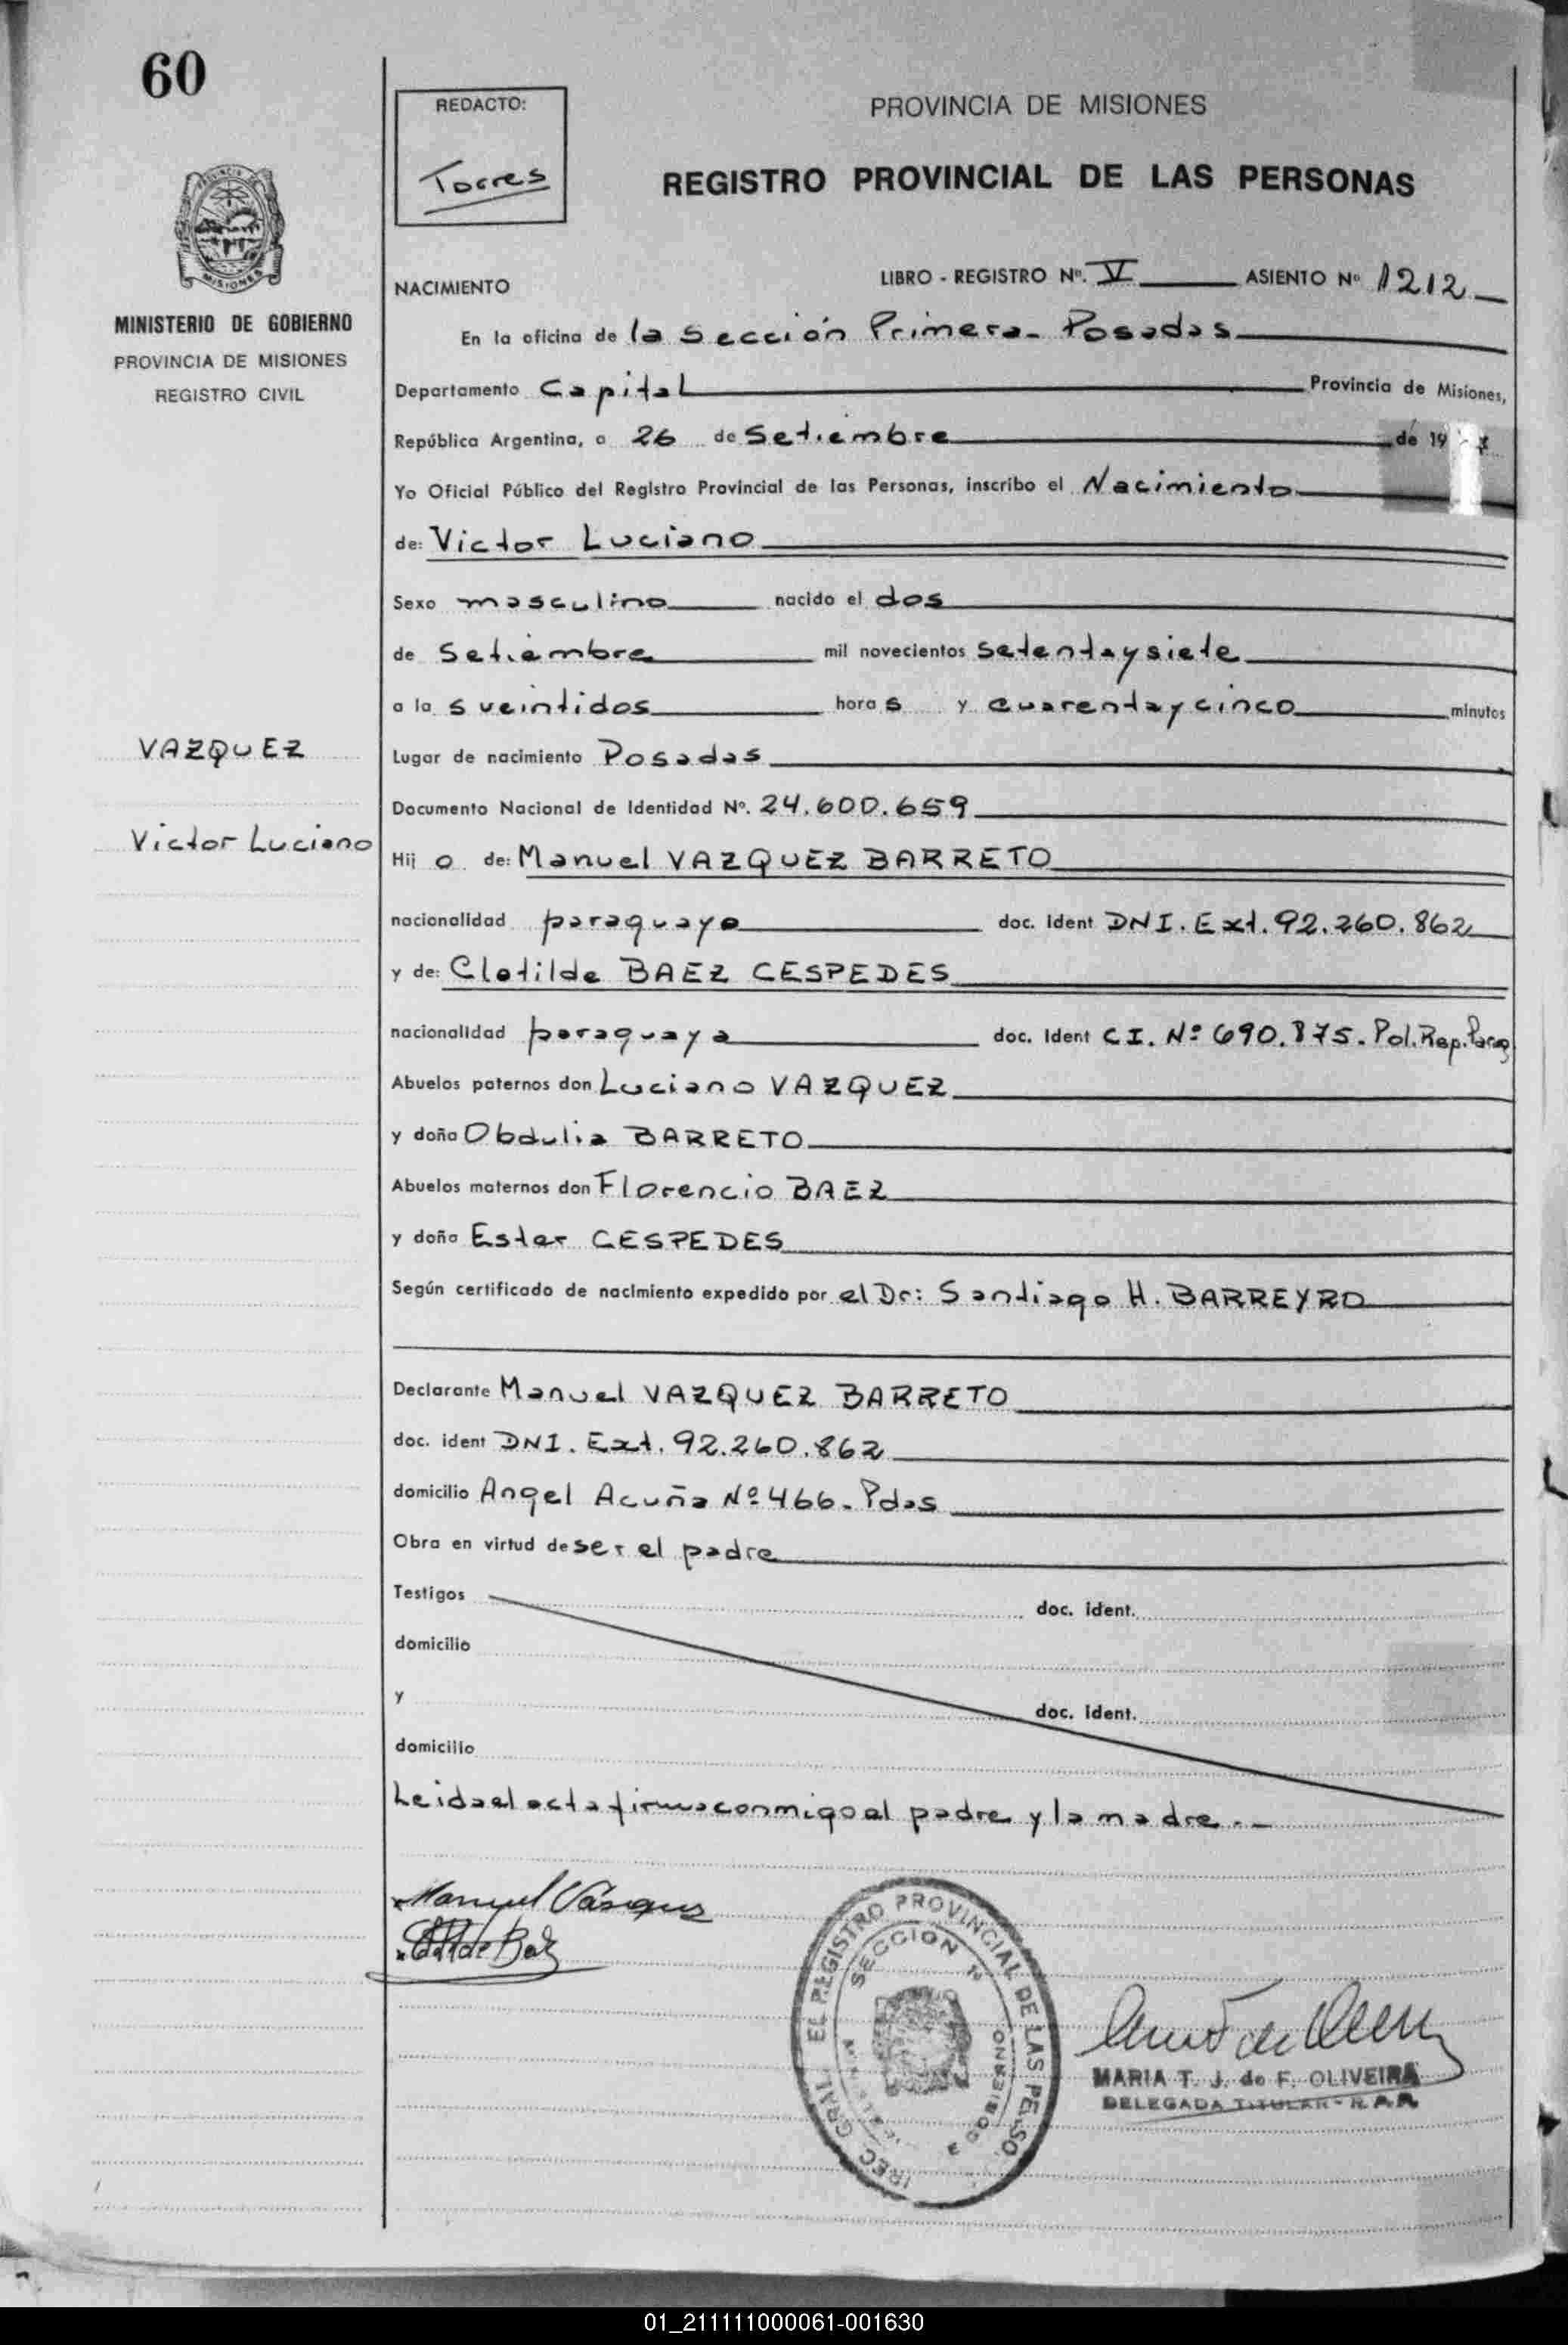 60
REDACTO:
Torres
PROVINCIA DE MISIONES
REGISTRO PROVINCIAL DE LAS PERSONAS
MISIONES
MINISTERIO DE GOBIERNO
PROVINCIA DE MISIONES
REGISTRO CIVIL
NACIMIENTO
LIBRO - REGISTRO Nº. V ASIENTO Nº 1212
En la oficina de la Sección Primera - Posadas
Departamento Capital Provincia de Misiones,
República Argentina, a 26 de Setiembre de 19
Yo Oficial Público del Registro Provincial de las Personas, inscribo el Nacimiento
de: Victor Luciano
Sexo masculino nacido el dos
de Setiembre mil novecientos setentaysiete
a la s veintidos hora s y cuarentaycinco minutos
VAZQUEZ
Lugar de nacimiento Posadas
Documento Nacional de Identidad Nº. 24.600.659
Victor Luciano
Hij o de: Manuel VAZQUEZ BARRETO
nacionalidad paraguayo doc. ident DNI. Ext. 92.260.862
y de: Clotilde BAEZ CESPEDES
nacionalidad paraguaya doc. ident CI. Nº 690.875. Pol. Rep. Parag
Abuelos paternos don Luciano VAZQUEZ
y doña Obdulia BARRETO
Abuelos maternos don Florencio BAEZ
y doña Ester CESPEDES
Según certificado de nacimiento expedido por el Dr: Santiago H. BARREYRO
Declarante Manuel VAZQUEZ BARRETO
doc. ident DNI. Ext. 92.260.862
domicilio Angel Acuña Nº 466 - Pdas
Obra en virtud de ser el padre
Testigos doc. ident.
domicilio
y doc. ident.
domicilio
Leida el acta firma conmigo el padre y la madre.-
Manuel Vásquez
EL REGISTRO PROVINCIAL DE LAS PERSO
SECCION 1ª
GOBIERNO
MARIA T. J. de F. OLIVEIRA
DELEGADA TITULAR - R. P. P.
01_211111000061-001630